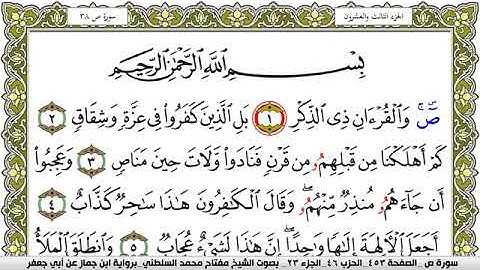 الجزء الثالث والعشرون سورة ص ٣٨
بِسْمِ اللَّهِ الرَّحْمَٰنِ الرَّحِيمِ
صٓ ۚ وَالْقُرْءَانِ ذِي الذِّكْرِ ١ بَلِ الَّذِينَ كَفَرُوا۟ فِي عِزَّةٍ وَشِقَاقٍ ٢
كَمْ أَهْلَكْنَا مِن قَبْلِهِمُۥ مِن قَرْنٍ فَنَادَوا۟ وَّلَاتَ حِينَ مَنَاصٍ ٣ وَعَجِبُوٓا۟
أَن جَآءَهُمُۥ مُنذِرٌ مِّنْهُمُۥ ۖ وَقَالَ الْكَٰفِرُونَ هَٰذَا سَٰحِرٌ كَذَّابٌ ٤
أَجَعَلَ الْآلِهَةَ إِلَٰهًا وَٰحِدًا ۖ إِنَّ هَٰذَا لَشَيْءٌ عُجَابٌ ٥ وَانطَلَقَ الْمَلَأُ
سورة ص _ الصفحة ٤٥٣_ الحزب ٤٦_ الجزء ٢٣_ بصوت الشيخ مفتاح محمد السلطني_ برواية ابن جماز عن أبي جعفر